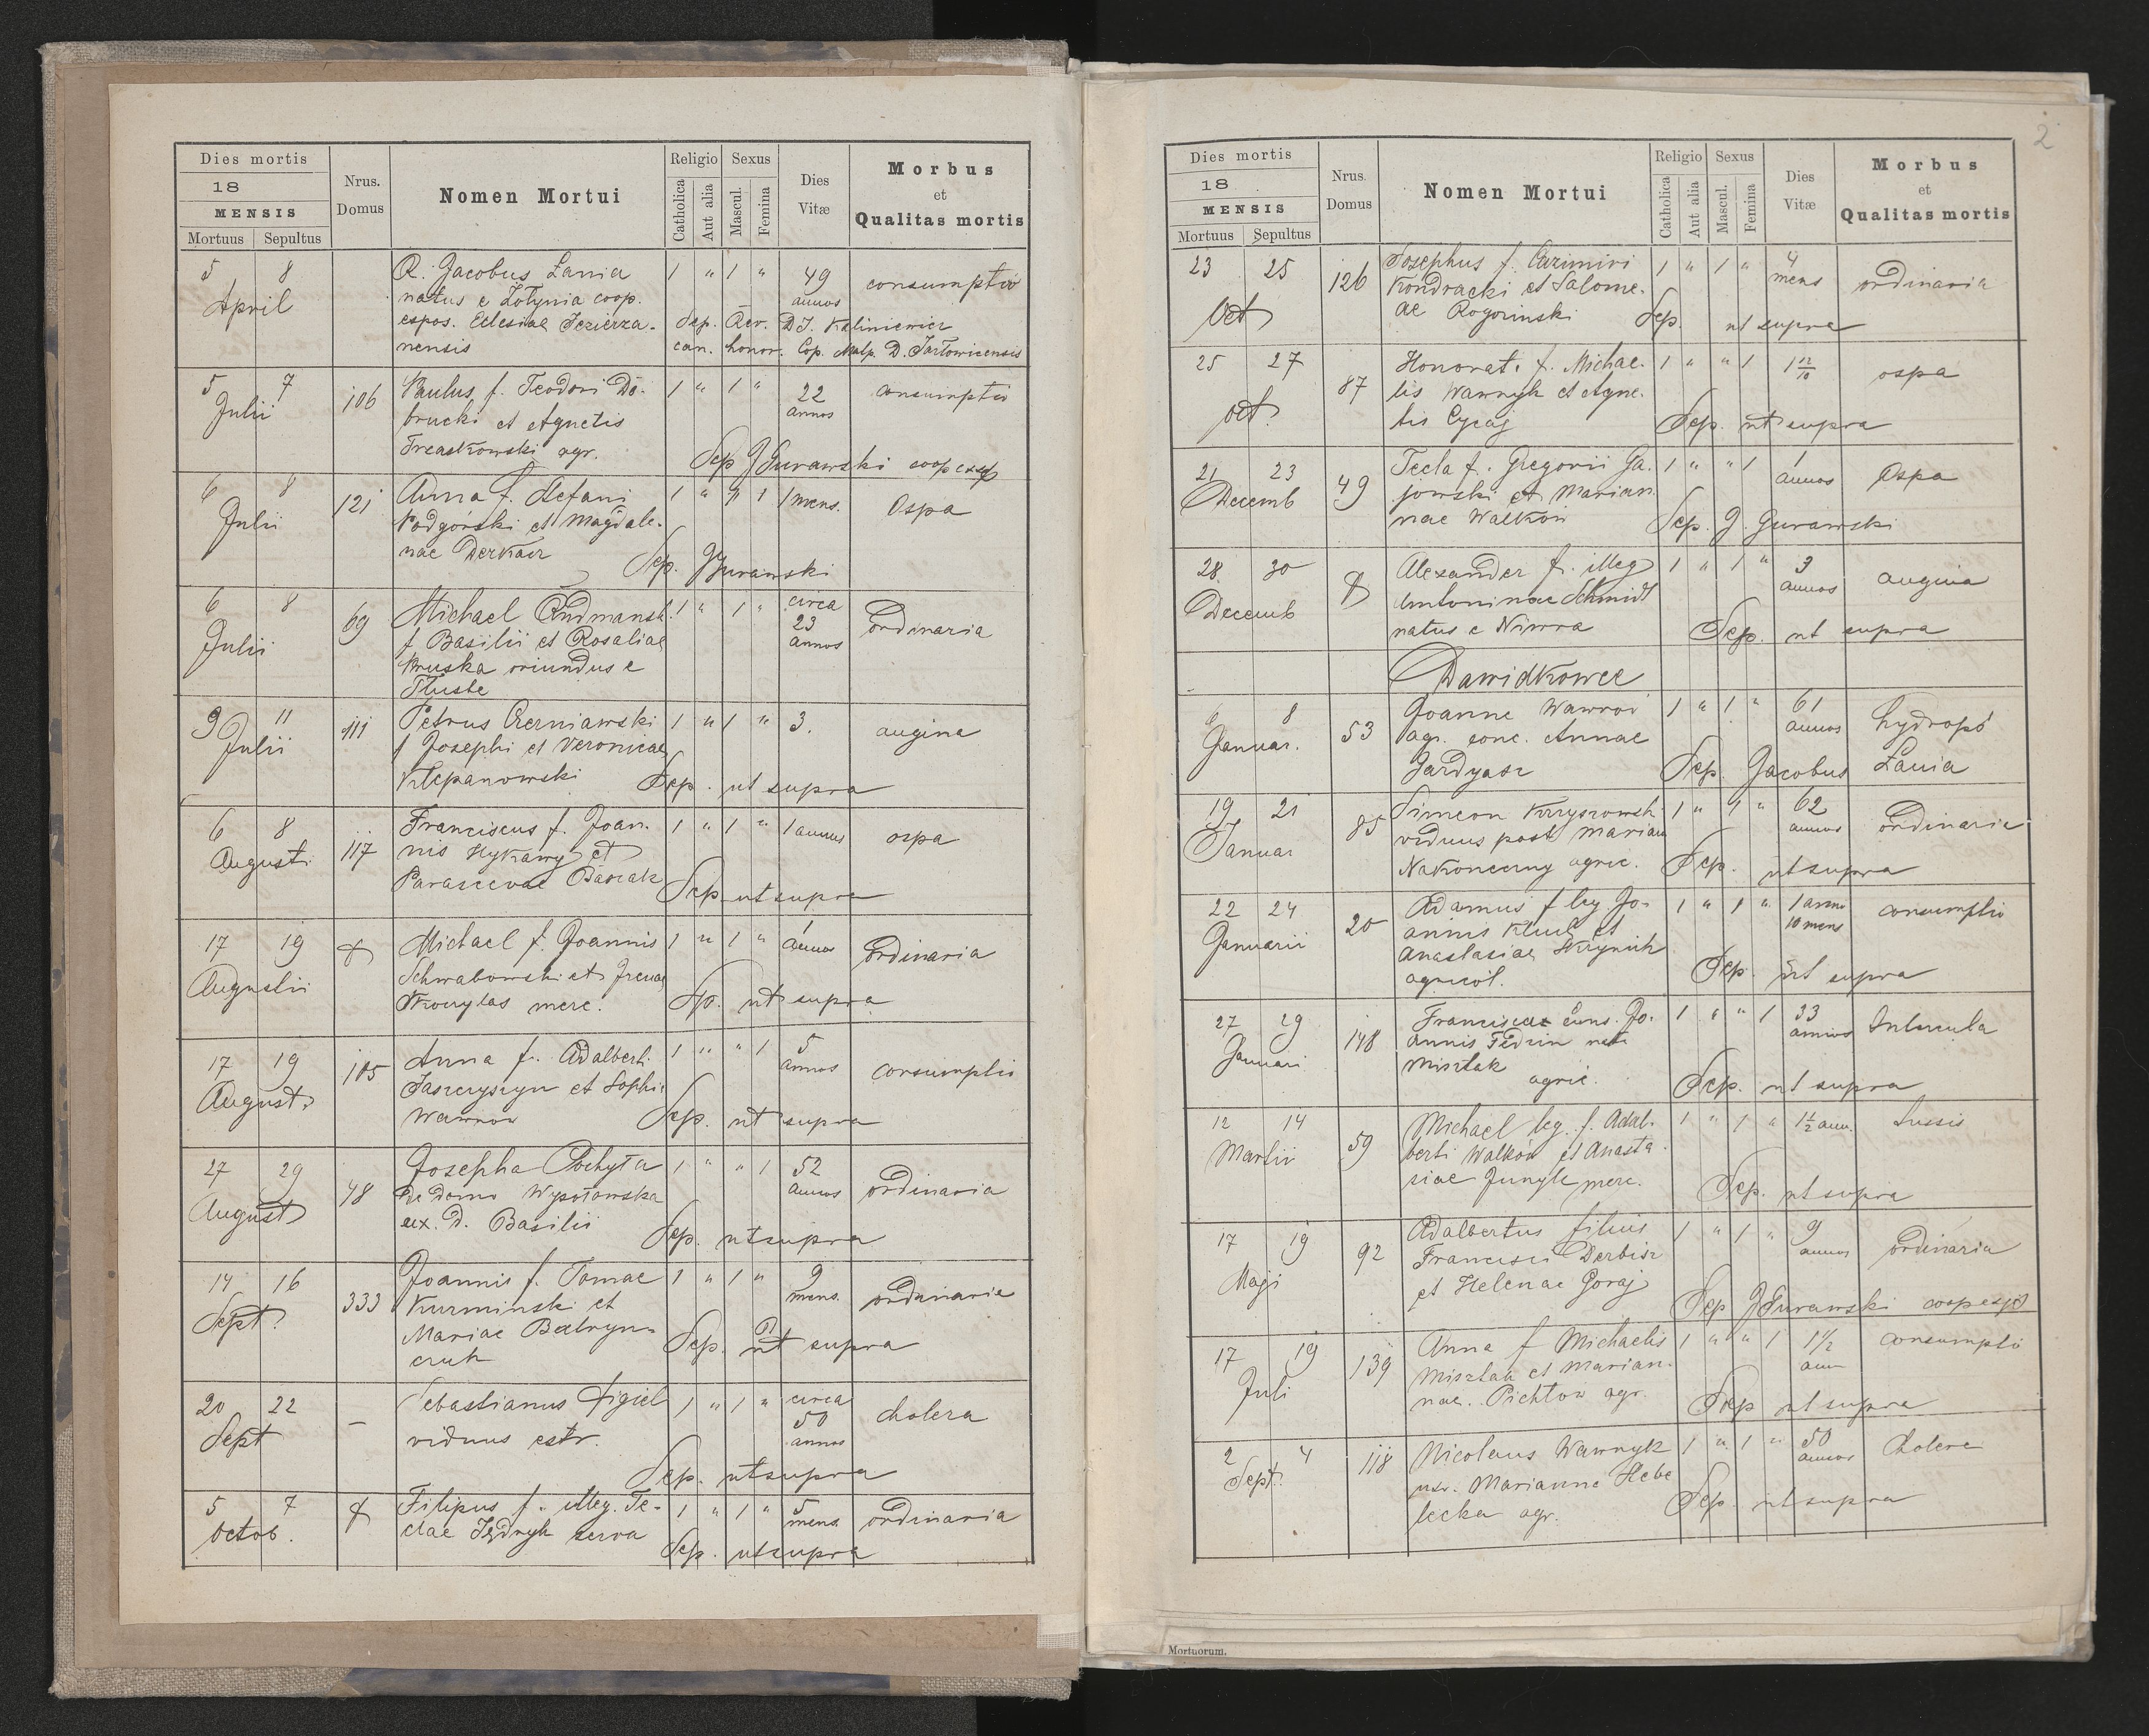 Dies mortis
18
MENSIS
Mortuus Sepultus
Nrus. Domus
Nomen Mortui
Religio
Catholica
Aut alia
Sexus
Mascul.
Femina
Dies Vitæ
Morbus et Qualitas mortis
5 8 R. Jacobus Lania 1 " 1 " 49 consumptio
April natus e Żołynia coop. annos
expos. Eclesiae Jezierza- Sep. Rev. D J. Kaliniewicz
nensis can. honor. Cop. D.
5 7 106 Paulus f. Teodori Do- 1 " 1 " 22 consumptio
Julii brucki et Agnetis annos
agr. Sep J Gurawski coop exp
6 8 121 Anna f. Stefani 1 " " 1 1 mens. Ospa
Julii Podgórski et Magdale-
nae Derkacz Sep. J Gurawski
6 8 69 Michael 1 " 1 " circa 23 annos ordinaria
Julii f Basilii et Rosaliae
Kruska oriundus e
Tłuste
9 11 111 Petrus Czerniawski 1 " 1 " 3. angina
Julii f Josephi et Veronicae
Klepanowski Sep. ut supra
6 8 117 Franciscus f. Joan- 1 " 1 " 1 annus ospa
Augusti nis Hykawy et
Parascevae Sep ut supra
17 19 Michael f. Joannis 1 " 1 " 1 annos ordinaria
Augustii Schwabowski et Irenae
merc. Sep. ut supra
17 19 105 Anna f. Adalberti 1 " " 1 5 annos consumptio
August. et Sophi
Wawrow Sep. ut supra
27 29 48 Josepha Pochyta 1 " " 1 52 annos ordinaria
August de domo Wysotawska
ux. D. Basilii Sep. ut supra
14 16 333 Joannis f. Tomae 1 " 1 " 9 mens. ordinaria
Sept. Kurminski et
Mariae Batryn- Sep. ut supra
czuk
20 22 – Sebastianus Figiel 1 " 1 " circa 50 annos cholera
Sept viduus estr.
Sep. ut supra
5 7 Filipus f. illeg. Te- 1 " 1 " 5 mens. ordinaria
Octob. clae serva
Sep. ut supra
2
Dies mortis
18
MENSIS
Mortuus Sepultus
Nrus. Domus
Nomen Mortui
Religio
Catholica
Aut alia
Sexus
Mascul.
Femina
Dies Vitæ
Morbus et Qualitas mortis
23 25 126 Josephus f. Cazimiri 1 " 1 " 4 mens ordinaria
Oct Kondracki et Salome-
ae Rogozinski Sep. ut supra
25 27 87 Honorat. f. Michae- 1 " " 1 ospa
oct. lis Wawryk et Agne-
tis Cycaj Sep. ut supra
21 23 49 Tecla f. Gregorii Ga- 1 " " 1 1 annos Ospa
Decemb jowski et Marian-
nae Walków Sep. J. Gurawski
28 30 Alexander f. illeg 1 " 1 " 3 annos angina
Decemb Antoninae Schmidt
natus e Niwra Sep. ut supra
Dawidkowce
6 8 53 Joanne Wawrow 1 " 1 " 61 annos hydrops
Januar. agr. conc. Annae
Sep. Jacobus Lania
19 21 85 Simeon 1 " 1 " 62 annos ordinaria
Januar viduus post Mariam
Nakoneczny agric. Sep. ut supra
22 24 20 Adamus f leg. Jo- 1 " 1 " 1 anno 10 mens consumptio
Januarii annis Kluk et
Anastasiae
agricol. Sep. ut supra
27 29 148 Francisca cons. Jo- 1 " " 1 33 annos
Januari annis Fedzin nata
Misztak
agric. Sep. ut supra
12 14 59 Michael leg. f. Adal- 1 " 1 " 1½ ann. tussis
Martii berti Walków et Anasta-
siae merc. Sep. ut supra
17 19 92 Adalbertus filius 1 " 1 " 9 annos ordinaria
Maji Francisci Derbisz
et Helenae Goraj Sep J Gurawski coop exp
17 19 139 Anna f Michaelis 1 " " 1 1½ ann consumptio
Juli Misztak et Marian-
nae. agr. Sep ut supra
2 4 118 Nicolaus Wawryk 1 " 1 " 50 annos Cholera
Sept. Marianne Hebe
lecka agr. Sep. ut supra
Mortuorum.